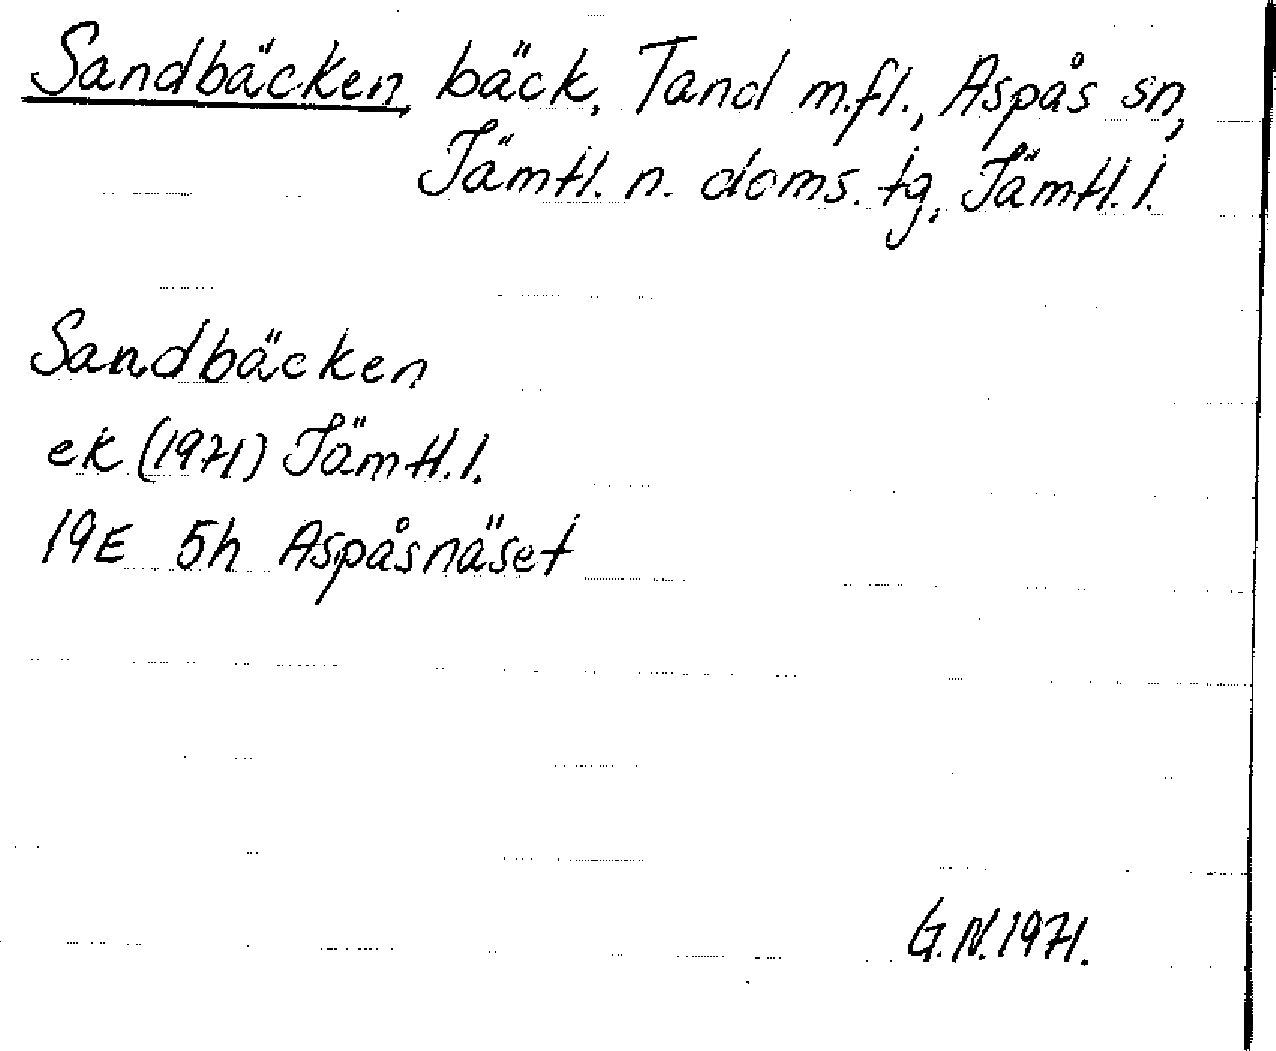 Sandbäcken, bäck, Tand m.fl., Aspås sn,
Jämtl. n. doms. tg, Jämtl. l.
Sandbäcken
ek (1971) Jämtl. l.
19E 5h Aspåsnäset
G.N. 1971.